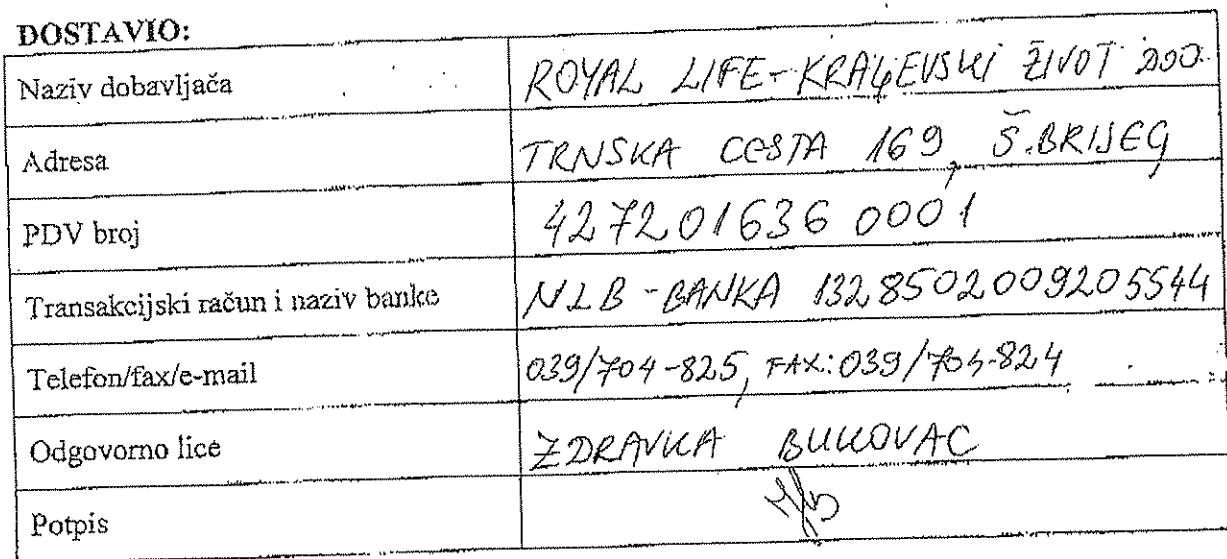 DOSTAVIO:
Naziv dobavljača ROYAL LIFE-KRALJEVSKI ŽIVOT DOO.
Adresa TRNSKA CESTA 169, Š.BRIJEG
PDV broj 427201636 0001
Transakcijski račun i naziv banke NLB-BANKA 1328502009205544
Telefon/fax/e-mail 039/704-825, FAX: 039/704-824
Odgovorno lice ZDRAVKA BUKOVAC
Potpis